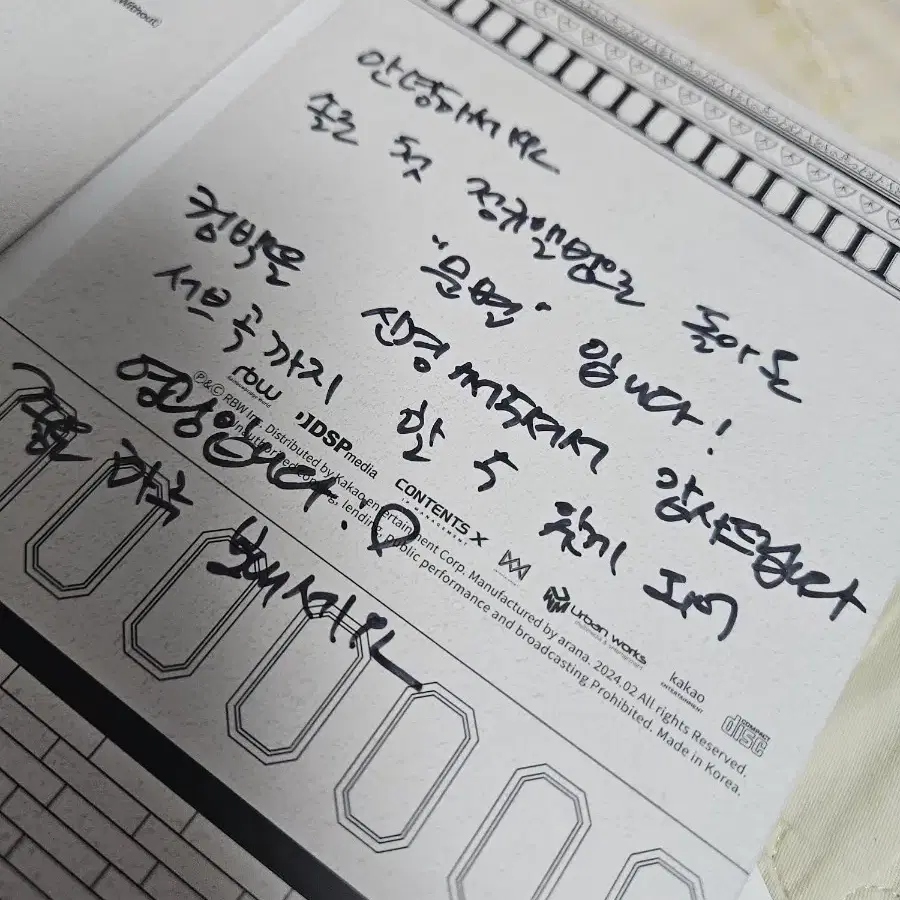 안녕하세요
솔로 첫 정규앨범으로 돌아온
"문별" 입니다!
컴백을 신경 써주셔서 감사드립니다
서브곡까지 할 수 되어
영광입니다!♡
좋은 하루 보내세요
rbw DSP media CONTENTS X I.P MANAGEMENT Urban works kakao ENTERTAINMENT COMPACT disc
Ⓟ&Ⓒ RBW Inc. Distributed by Kakao entertainment Corp. Manufactured by arana. 2024.02 All rights Reserved.
Unauthorized copying, lending, public performance and broadcasting Prohibited. Made in Korea.